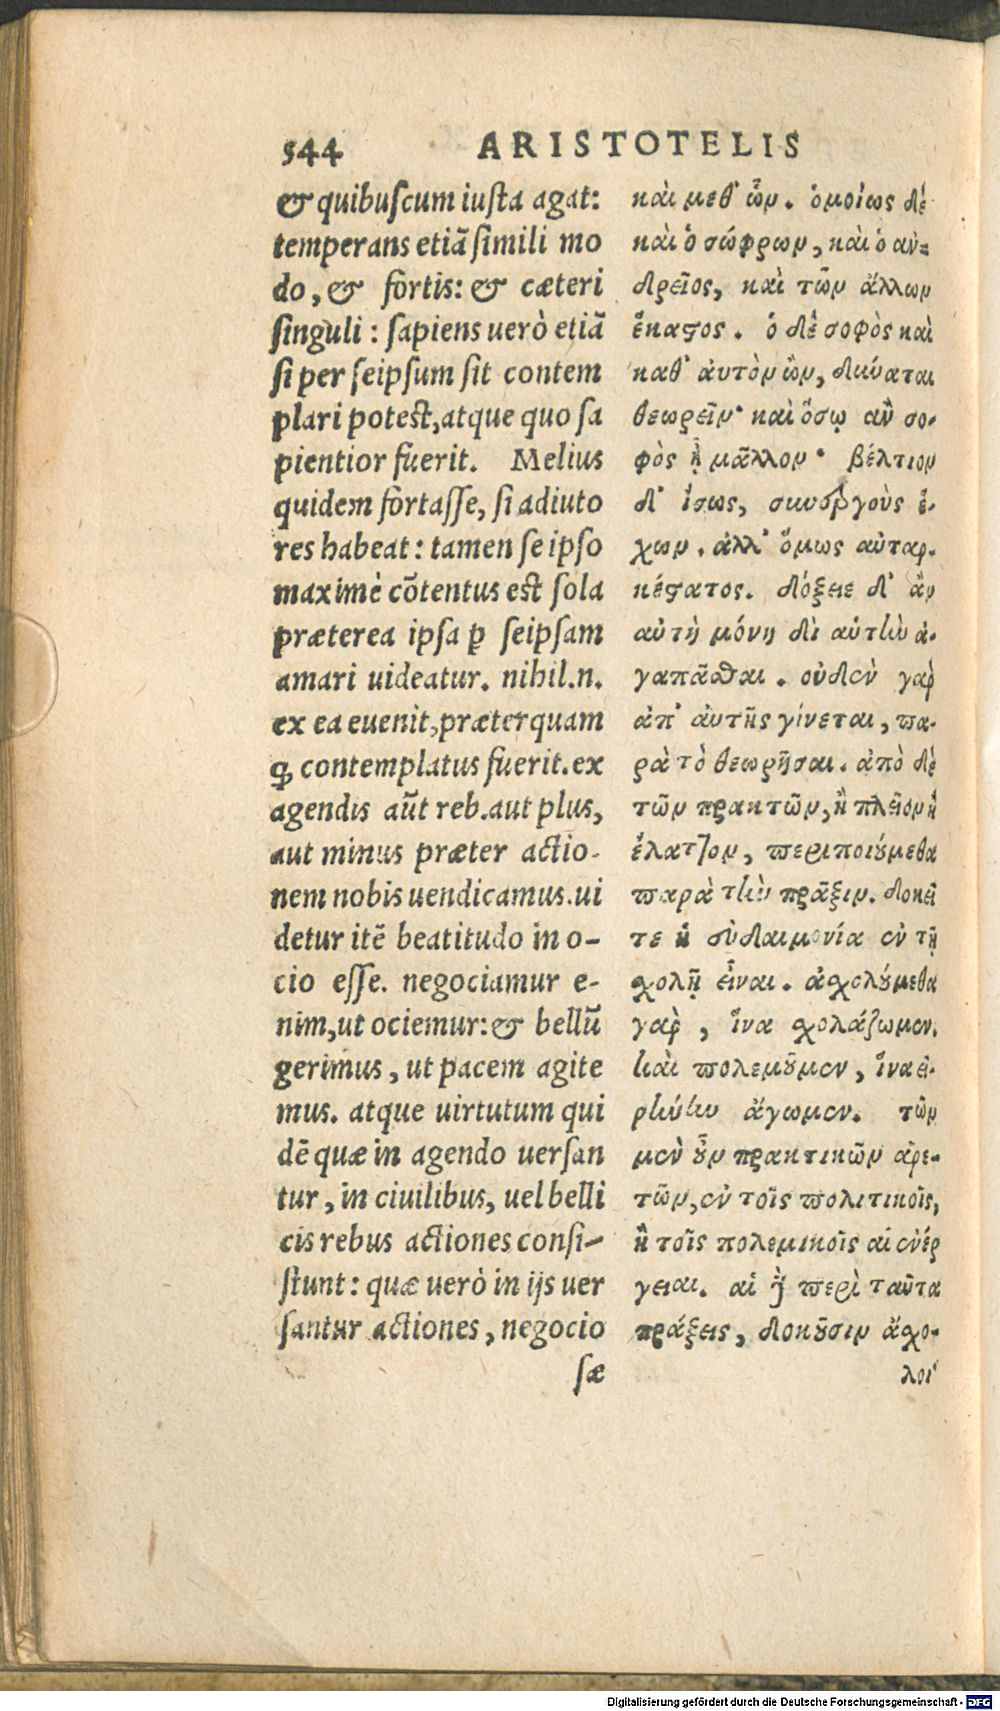 544 ARISTOTELIS
& quibuscum iusta agat:
temperans etiā simili mo
do, & fortis: & cæteri
singuli: sapiens uerò etiā
si per seipsum sit contem
plari potest, atque quo sa
pientior fuerit. Melius
quidem fortasse, si adiuto
res habeat: tamen se ipso
maximè cōtentus est sola
præterea ipsa ꝑ seipsam
amari uideatur. nihil .n.
ex ea euenit, præterquam
ꝙ contemplatus fuerit. ex
agendis aūt reb. aut plus,
aut minus præter actio-
nem nobis uendicamus. ui
detur itē beatitudo in o-
cio esse. negociamur e-
nim, ut ociemur: & bellū
gerimus, ut pacem agite
mus. atque uirtutum qui
dē quæ in agendo uersan
tur, in ciuilibus, uel belli
cis rebus actiones consi-
stunt: quæ uerò in ijs uer
santur actiones, negocio
sæ
καὶ μεθ' ὧν. ὁμοίως δέ
καὶ ὁ σώφρων, καὶ ὁ ἀν-
δρεῖος, καὶ τῶν ἄλλων
ἕκαστος. ὁ δὲ σοφὸς καὶ
καθ' αὑτὸν ὢν, δύναται
θεωρεῖν· καὶ ὅσῳ ἂν σο-
φὸς ᾖ μᾶλλον· βέλτιον
δ' ἴσως, συνεργοὺς ἔ-
χων. ἀλλ' ὅμως αὐταρ-
κέστατος. δόξειε δ' ἂν
αὐτὴ μόνη δι' αὑτὴν ἀ-
γαπᾶσθαι. οὐδὲν γὰρ
ἀπ' αὐτῆς γίνεται, πα-
ρὰ τὸ θεωρῆσαι. ἀπὸ δὲ
τῶν πρακτῶν, ἢ πλεῖον ἢ
ἔλαττον, περιποιούμεθα
παρὰ τὴν πρᾶξιν. δοκεῖ
τε ἡ εὐδαιμονία ἐν τῇ
σχολῇ εἶναι. ἀσχολούμεθα
γὰρ, ἵνα σχολάζωμεν.
καὶ πολεμοῦμεν, ἵνα εἰ-
ρήνην ἄγωμεν. τῶν
μὲν οὖν πρακτικῶν ἀρε-
τῶν, ἐν τοῖς πολιτικοῖς,
ἢ τοῖς πολεμικοῖς αἱ ἐνέρ
γειαι. αἱ δὲ περὶ ταῦτα
πράξεις, δοκοῦσιν ἄσχο-
λοι
Digitalisierung gefördert durch die Deutsche Forschungsgemeinschaft - DFG